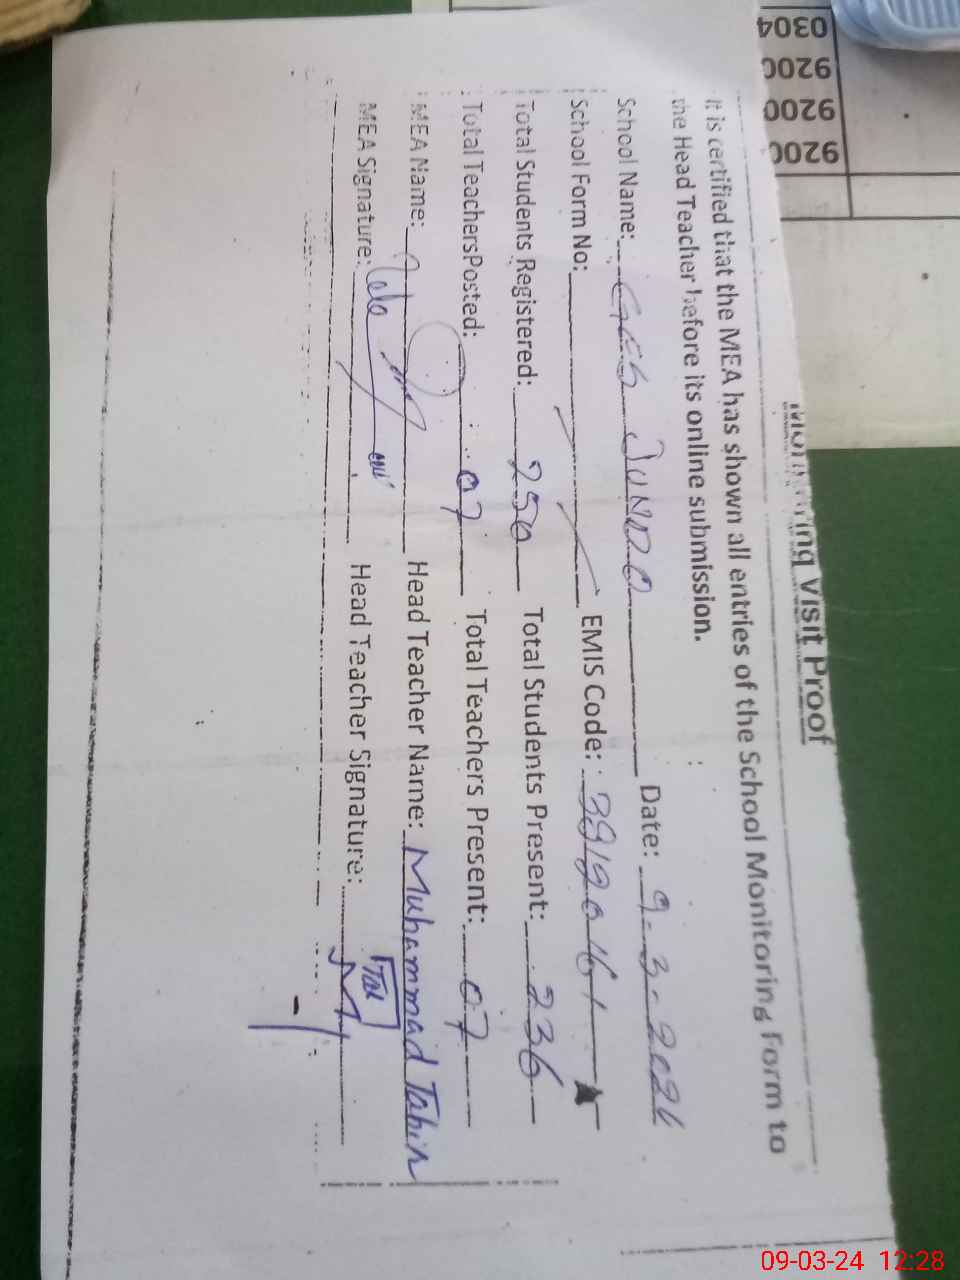 Monitoring Visit Proof
It is certified that the MEA has shown all entries of the School Monitoring Form to
the Head Teacher before its online submission.
School Name: GES JUNDO Date: 9-3-2024
School Form No: EMIS Code: 39120161
Total Students Registered: 250 Total Students Present: 236
Total TeachersPosted: 07 Total Teachers Present: 07
MEA Name: Head Teacher Name: Muhammad Tahir
MEA Signature: Head Teacher Signature:
0304
9200
9200
9200
09-03-24 12:28